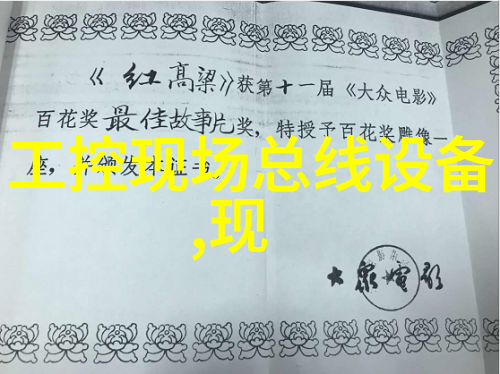 《红高粱》获第十一届《大众电影》
百花奖最佳故事片奖，特授予百花奖雕像一
座，并颁发本证书。
工控现场总线设备
,现
大众电影